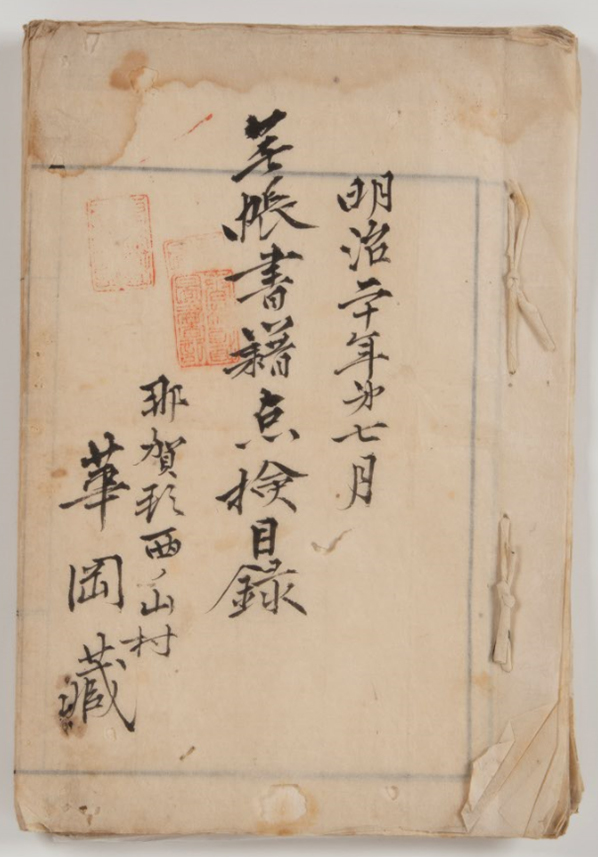 明治二十年第七月
帳書籍点検目録
那賀郡西ノ山村
華岡藏